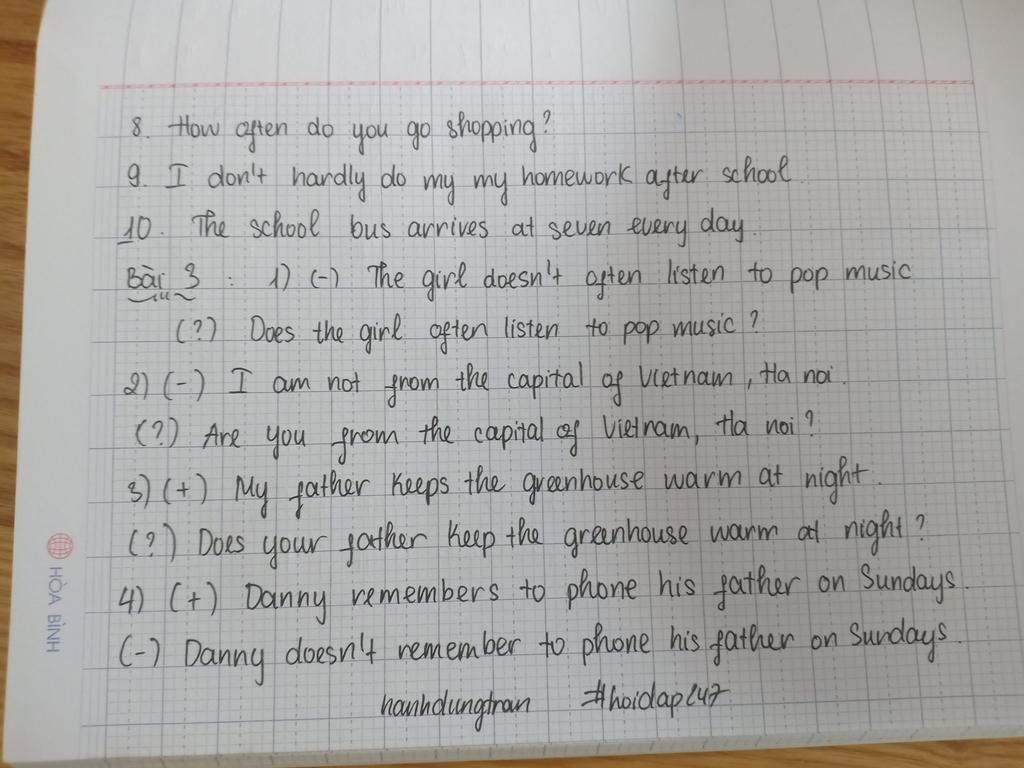 8. How often do you go shopping?
9. I don't hardly do my my homework after school
10. The school bus arrives at seven every day.
Bài 3 : 1) (-) The girl doesn't often listen to pop music
(?) Does the girl often listen to pop music?
2) (-) I am not from the capital of Vietnam, Ha noi.
(?) Are you from the capital of Vietnam, Ha noi?
3) (+) My father keeps the greenhouse warm at night.
(?) Does your father keep the greenhouse warm at night?
4) (+) Danny remembers to phone his father on Sundays.
(-) Danny doesn't remember to phone his father on Sundays.
hanhdungtran #hoidap247
HÒA BÌNH